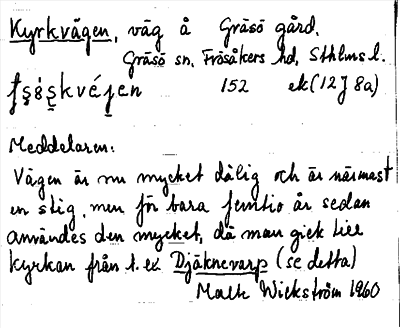 Kyrkvägen, väg å Gräsö gård.
Gräsö sn, Frösåkers hd, Sthlms l.
152 ek (12J 8a)
Meddelaren:
Vägen är nu mycket dålig och är närmast
en stig, men för bara femtio år sedan
användes den mycket, då man gick till
kyrkan från t. ex Djäknevarp (se detta)
Malte Wickström 1960